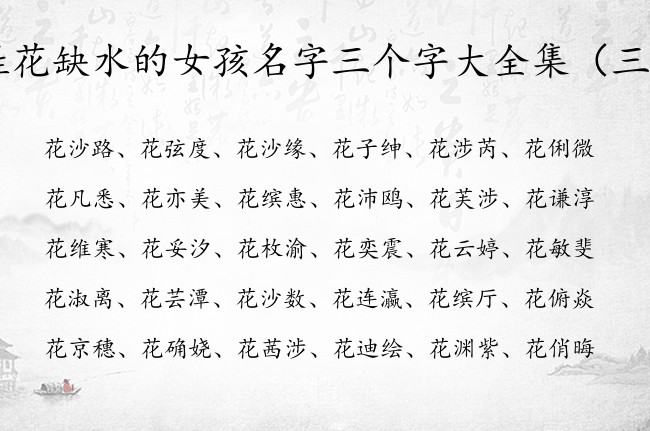 花缺水的女孩名字三个字大全集（三
花沙路、花弦度、花沙缘、花子绅、花涉芮、花俐微
花凡悉、花亦美、花缤惠、花沛鸥、花芙涉、花谦淳
花维寒、花妥汐、花枚渝、花奕震、花云婷、花敏斐
花淑离、花芸潭、花沙数、花连瀛、花缤厅、花俯焱
花京穗、花确娆、花茜涉、花迪绘、花渊紫、花俏晦